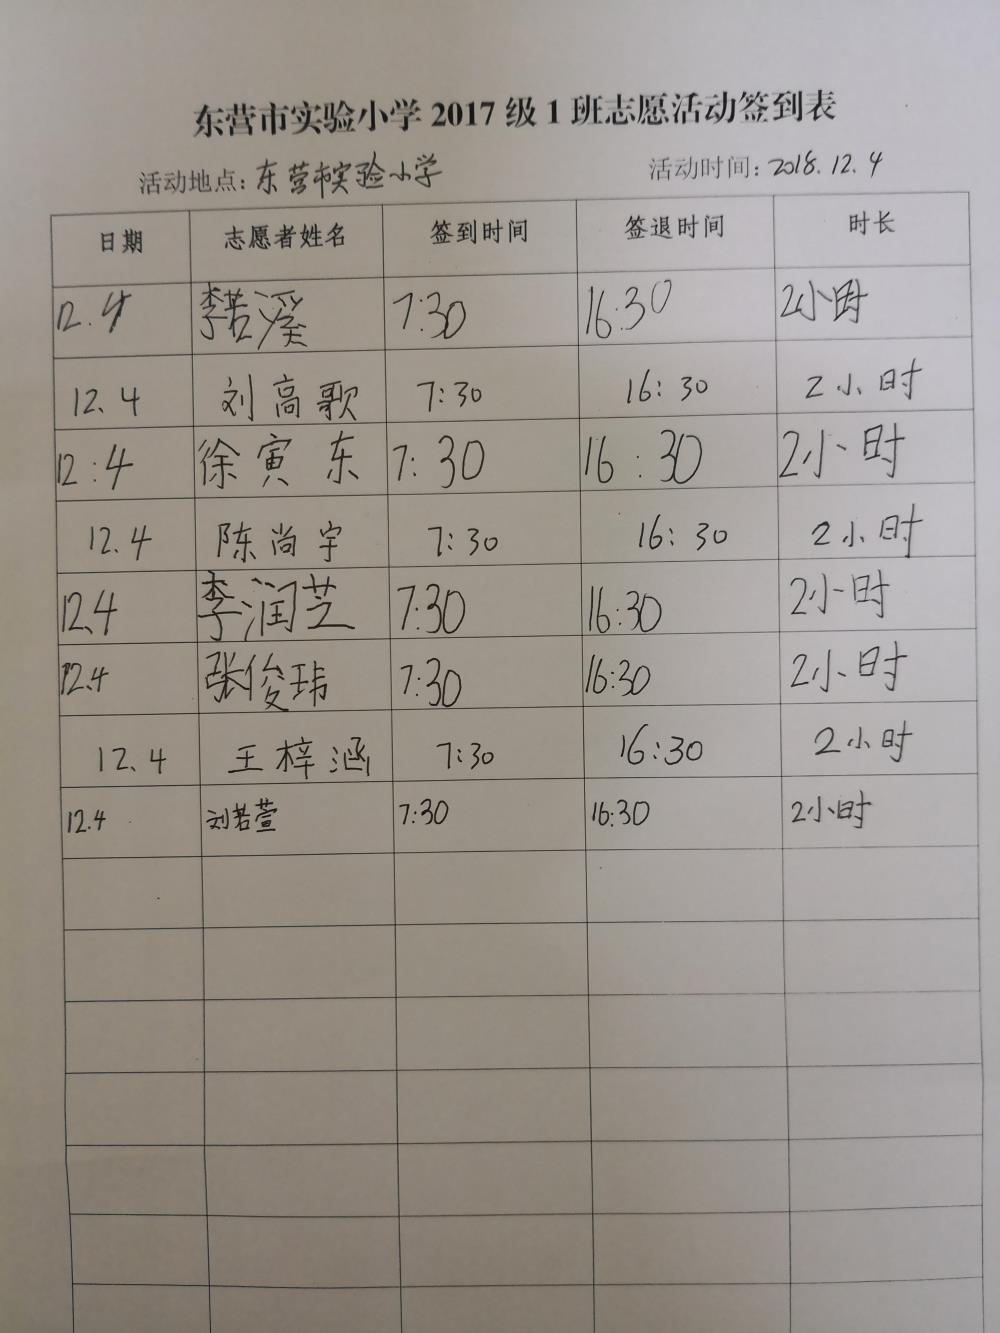 东营市实验小学2017级1班志愿活动签到表
活动地点:东营市实验小学 活动时间:2018.12.4
日期 志愿者姓名 签到时间 签退时间 时长
12.4 李若溪 7:30 16:30 2小时
12.4 刘高歌 7:30 16:30 2小时
12:4 徐寅东 7:30 16:30 2小时
12.4 陈尚宇 7:30 16:30 2小时
12.4 李润芝 7:30 16:30 2小时
12.4 张俊玮 7:30 16:30 2小时
12.4 王梓涵 7:30 16:30 2小时
12.4 刘若萱 7:30 16:30 2小时